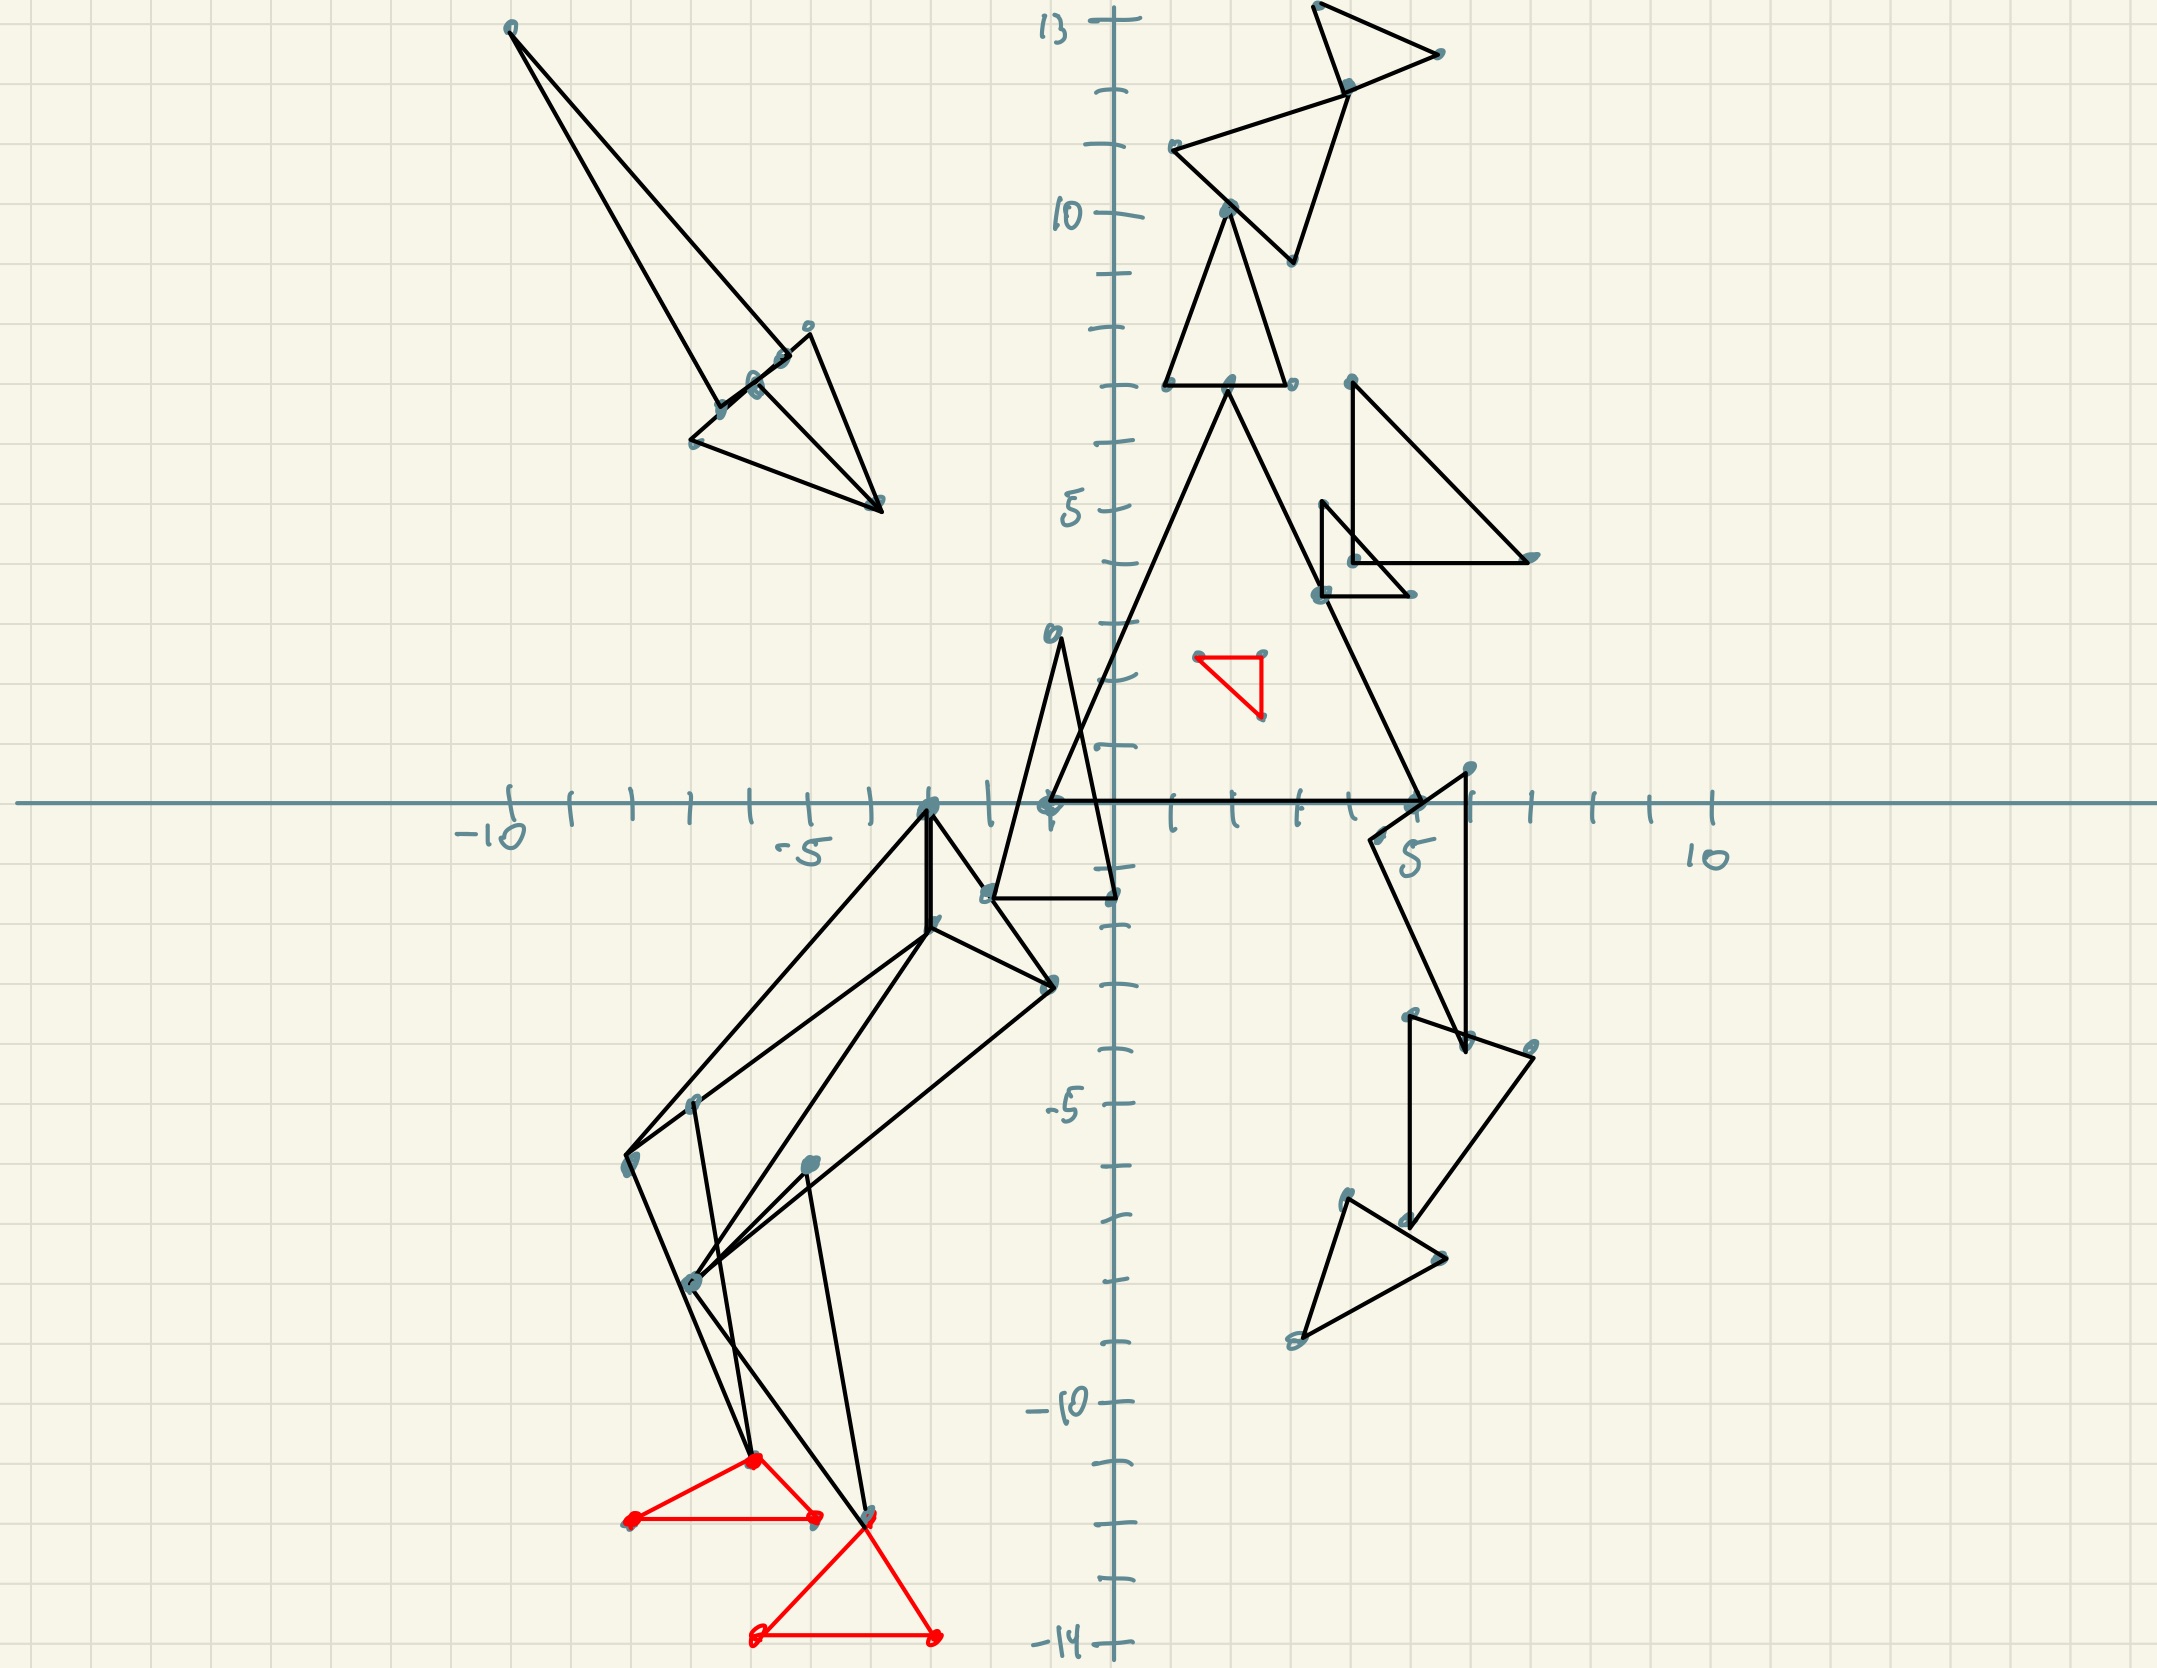 13
10
5
-10
-5
5
10
-5
-10
-14